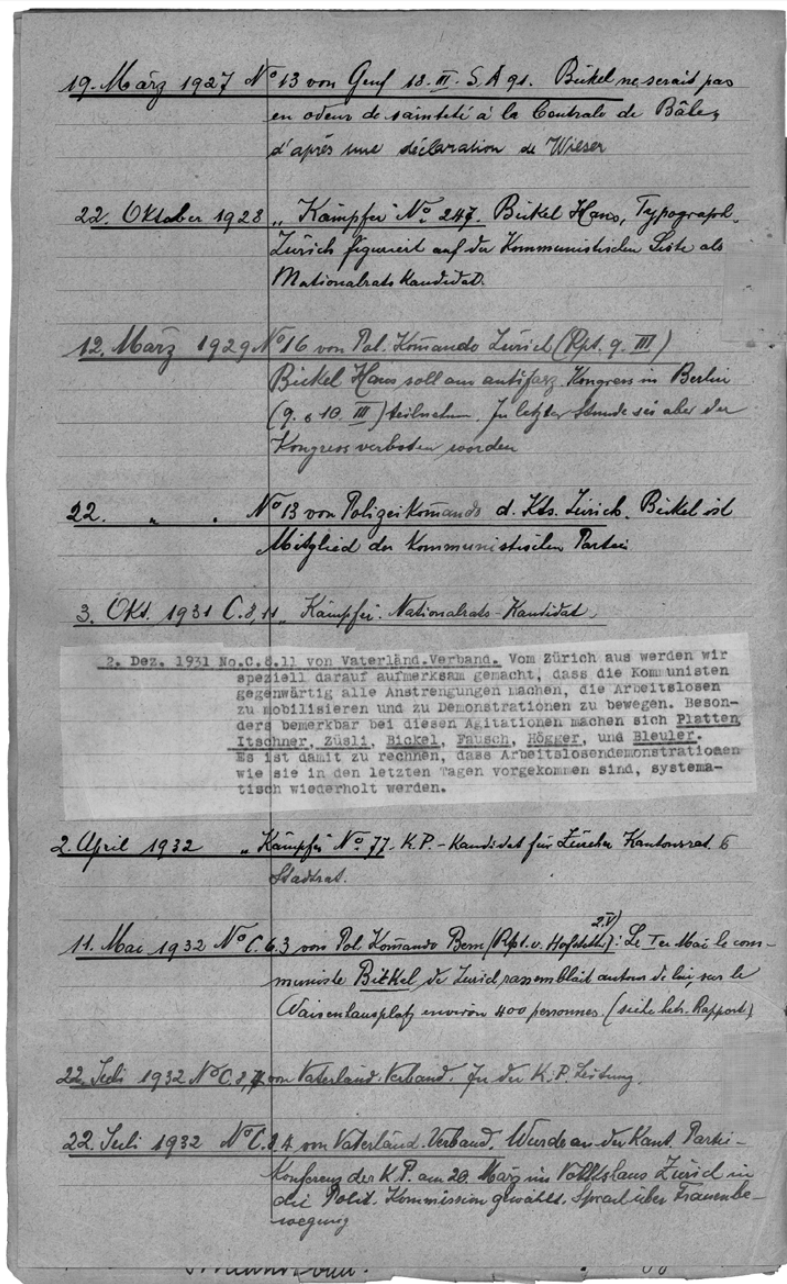 19. März 1927 No 13 von Genf 18. III. S. A 91. Bickel ne serait pas
en odeur de sainteté à la Centrale de Bâle,
d'après une déclaration de Wieser
22. Oktober 1928 „Kämpfer" No 247. Bickel Hans, Typograph,
Zürich figuriert auf der Kommunistischen Liste als
Nationalrats Kandidat.
12. März 1929 No 16 von Pol. Komando Zürich (Rpt. 9. III)
Bickel Hans soll am antifasz. Kongress in Berlin
(9. & 10. III) teilnehmen. In letzter Stunde sei aber der
Kongress verboten worden
22. " . No 13 von Polizeikomando d. Kts. Zürich. Bickel ist
Mitglied der Kommunistischen Partei
3. Okt. 1931 C.8,11 „Kämpfer". Nationalrats-Kandidat.
2. Dez. 1931 No.C.8.11 von Vaterländ.Verband. Vom Zürich aus werden wir
speziell darauf aufmerksam gemacht, dass die Kommunisten
gegenwärtig alle Anstrengungen machen, die Arbeitslosen
zu mobilisieren und zu Demonstrationen zu bewegen. Beson-
ders bemerkbar bei diesen Agitationen machen sich Platten,
Itschner, Züsli, Bickel, Fausch, Högger, und Bleuler.
Es ist damit zu rechnen, dass Arbeitslosendemonstrationen
wie sie in den letzten Tagen vorgekommen sind, systema-
tisch wiederholt werden.
2. April 1932 „Kämpfer" No 77. K.P.-Kandidat für Zürcher Kantonsrat &
Stadtrat.
11. Mai 1932 No C.6.3 von Pol. Komando Bern (Rpt. v. Hofstettler 2.V): Le 1er Mai le com-
muniste Bickel, de Zurich rassemblait autour de lui, sur le
Waisenhausplatz environ 400 personnes. (siehe betr. Rapport)
22. Juli 1932 No C.8,4 von Vaterländ. Verband. In der K.P. Leitung.
22. Juli 1932 No C.8,4 von Vaterländ. Verband. Wurde an der Kant. Partei-
Konferenz der K.P. am 20. März im Volkshaus Zürich in
die Polit. Kommission gewählt. Sprach über Frauenbe-
wegung